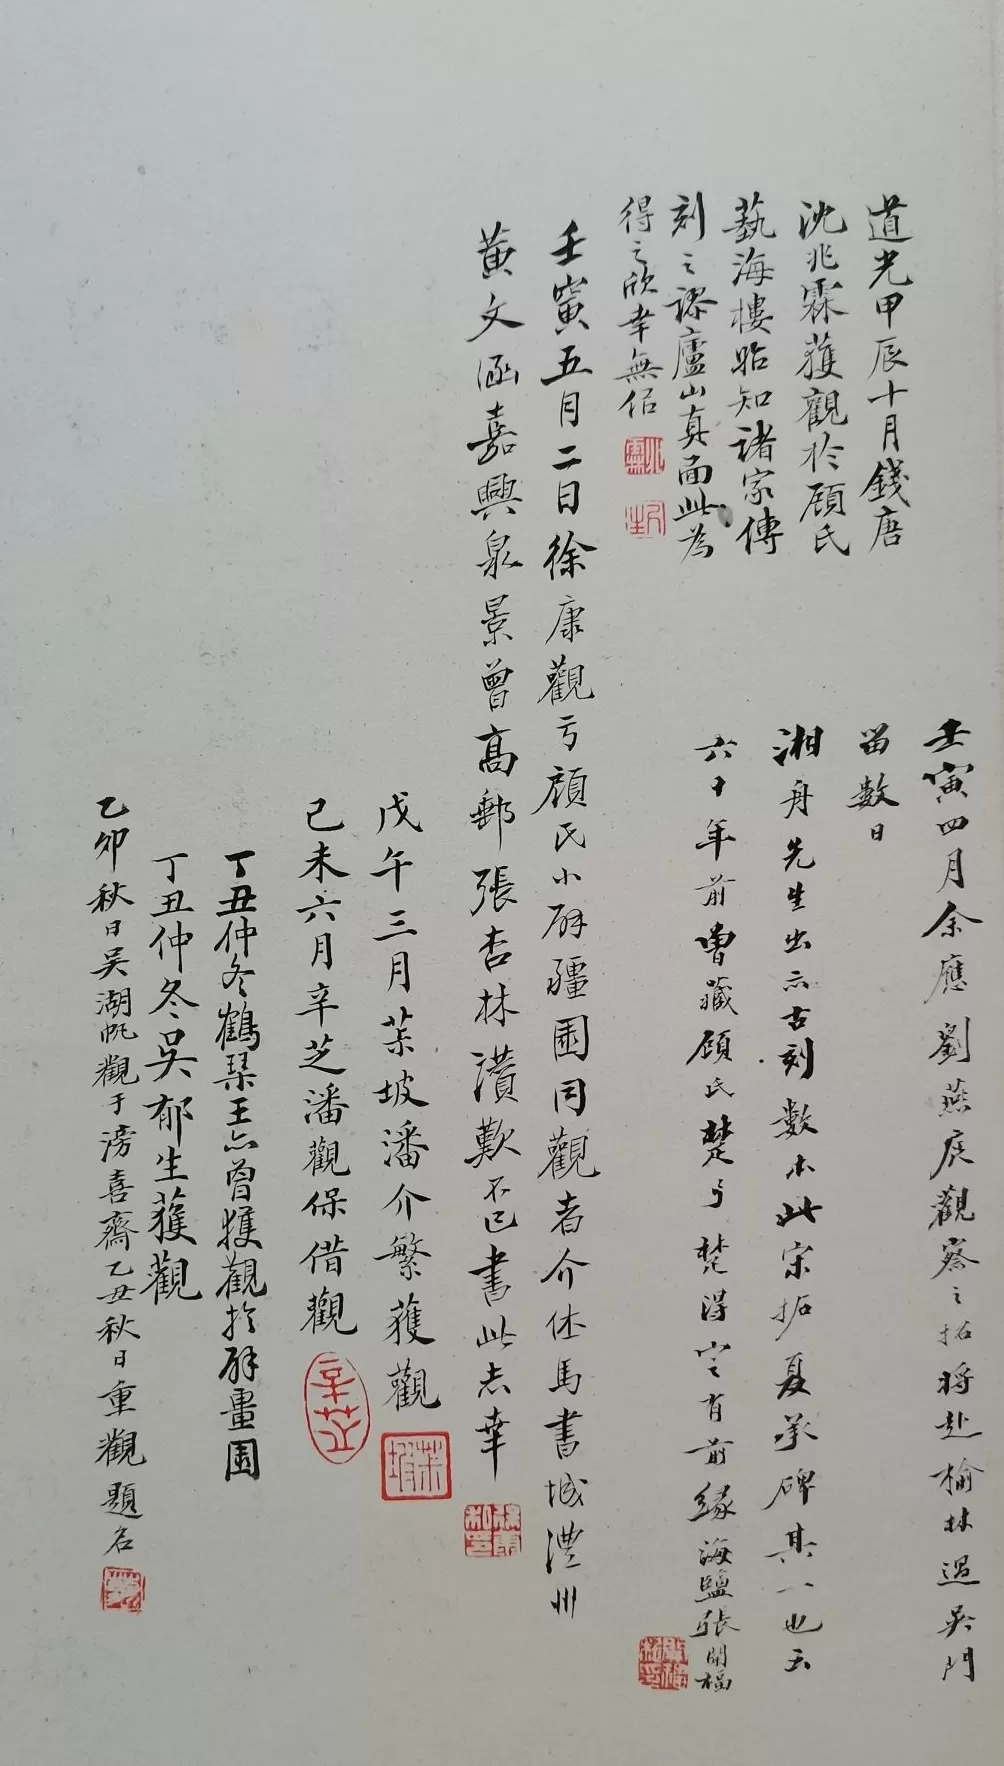 壬寅四月余應劉燕庭觀察之招將赴榆林過吳門
留數日
湘舟先生出示古刻數本此宋拓夏承碑其一也云
六十年前曾藏顧氏楚弓楚得定有前緣海鹽張開福
道光甲辰十月錢唐
沈兆霖獲觀於顧氏
藝海樓昭知諸家傳
刻之謬廬山真面此為
得之欣幸無佀
壬寅五月二日徐康觀亏顧氏小辟疆園同觀者介休馬書城澧州
黃文涵嘉興泉景曾高郵張杏林讚歎不已書此志幸
戊午三月茮坡潘介繁獲觀
己未六月辛芝潘觀保借觀
丁丑仲冬鶴琹王忘曾獲觀於辟畺園
丁丑仲冬吳郁生獲觀
乙卯秋日吳湖帆觀于滂喜齋乙丑秋日重觀題名